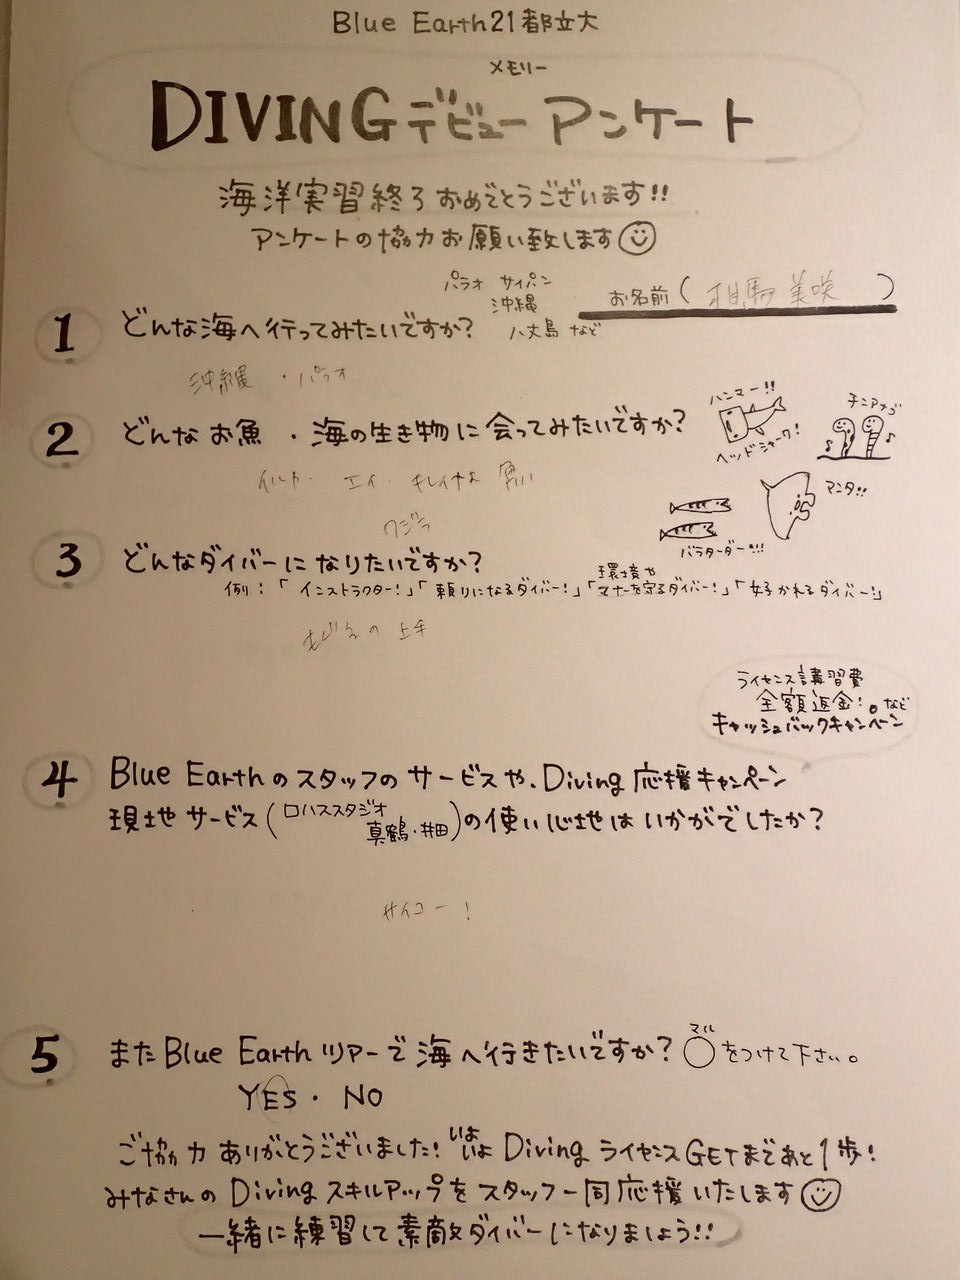 Blue Earth21都立大
メモリー
DIVINGデビューアンケート
海洋実習終了おめでとうございます!!
アンケートの協力お願い致します
お名前( 相馬 美咲 )
1 どんな海へ行ってみたいですか?
パラオ サイパン
沖縄
八丈島 など
沖縄 ・パラオ
2 どんなお魚・海の生き物に会ってみたいですか?
イルカ・ エイ・ キレイな 魚
クジラ
ハンマー!!
ヘッドシャーク!
チンアナゴ
マンタ!!
バラクーダー!!!
3 どんなダイバーになりたいですか?
環境や
例:「インストラクター!」「頼りになるダイバー!」「マナーを守るダイバー!」「好かれるダイバー!」
の 上手
ライセンス講習費
全額返金!。など
キャッシュバックキャンペーン
4 Blue Earthのスタッフのサービスや、Diving応援キャンペーン
現地サービス(ロハススタジオ
真鶴・井田)の使い心地はいかがでしたか?
サイコー!
5 またBlue Earthツアーで海へ行きたいですか?○をつけて下さい。
マル
YES・NO
ご協力ありがとうございました!いよいよDivingライセンスGETまであと1歩!
みなさんのDivingスキルアップをスタッフ一同応援いたします
一緒に練習して素敵ダイバーになりましょう!!